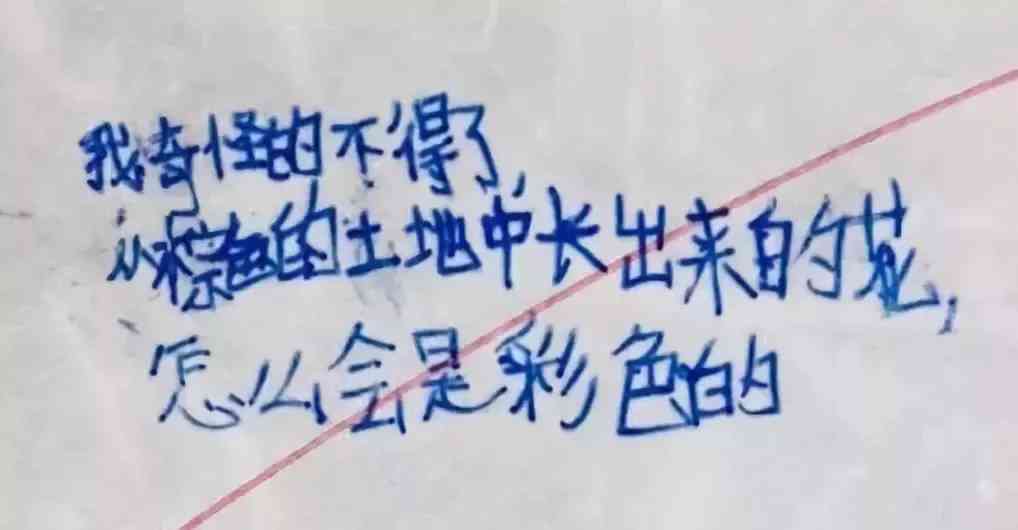 我奇怪的不得了，
从棕色的土地中长出来的花，
怎么会是彩色的